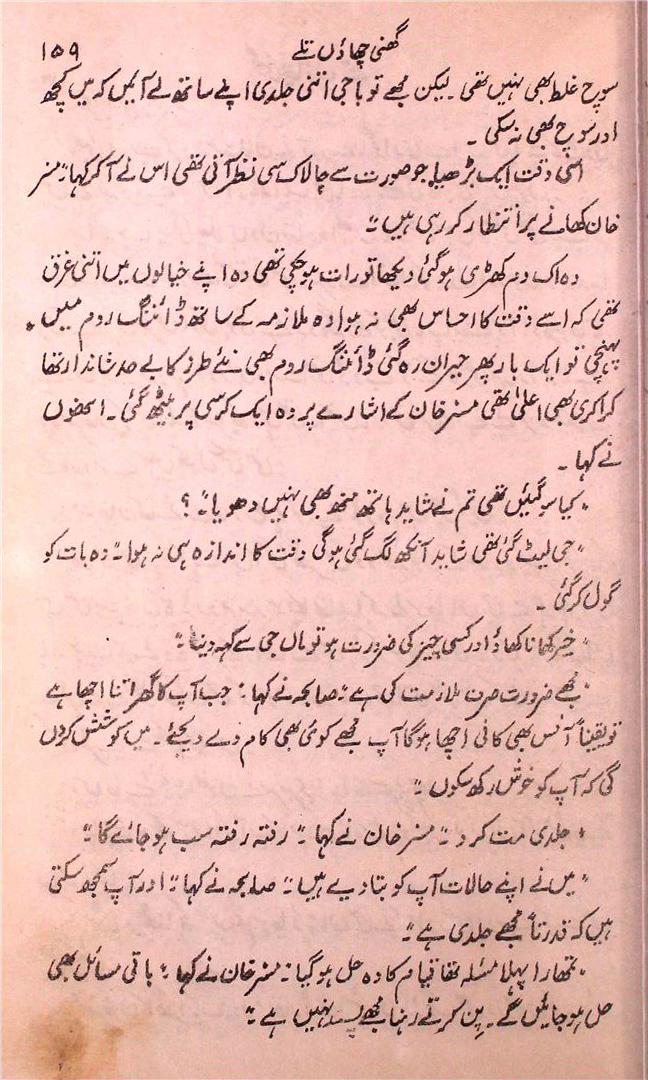 گھنی چھاؤں تلے ۱۵۹
سوچ غلط بھی نہیں تھی ۔ لیکن مجھے تو باجی اتنی جلدی اپنے ساتھ لے آئیں کہ میں کچھ
اور سوچ بھی نہ سکی ۔
اسی وقت ایک بڑھیا جو صورت سے چالاک سی نظر آتی تھی اس نے آ کر کہا ۔" مسز
خان کھانے پر انتظار کر رہی ہیں ۔"
وہ اک دم کھڑی ہو گئی دیکھا تو رات ہو چکی تھی وہ اپنے خیالوں میں اتنی غرق
تھی کہ اسے وقت کا احساس بھی نہ ہوا وہ ملازمہ کے ساتھ ڈائننگ روم میں
پہنچی تو ایک بار پھر حیران رہ گئی ڈائننگ روم بھی نئے طرز کا بے حد شاندار تھا
کراکری بھی اعلیٰ تھی مسز خان کے اشارے پر وہ ایک کرسی پر بیٹھ گئی ۔ انھوں
نے کہا ۔
" کیا سو گئیں تھی تم نے شاید ہاتھ منھ بھی نہیں دھویا ۔" ؟
" جی لیٹ گئی تھی شاید آنکھ لگ گئی ہو گی وقت کا اندازہ ہی نہ ہوا ۔" وہ بات کو
گول کر گئی ۔
" خیر کھانا کھاؤ اور کسی چیز کی ضرورت ہو تو ماں جی سے کہہ دینا ۔"
" مجھے ضرورت صرف ملازمت کی ہے ۔" صابحہ نے کہا ۔" جب آپ کا گھر اتنا اچھا ہے
تو یقیناً آفس بھی کافی اچھا ہو گا آپ مجھے کوئی بھی کام دے دیجئے ۔ میں کوشش کروں
گی کہ آپ کو خوش رکھ سکوں ۔"
" جلدی مت کرو ۔" مسز خان نے کہا ۔" رفتہ رفتہ سب ہو جائے گا ۔"
" میں نے اپنے حالات آپ کو بتا دیے ہیں ۔" صابحہ نے کہا ۔" اور آپ سمجھ سکتی
ہیں کہ قدرتاً مجھے جلدی ہے ۔"
" تمھارا پہلا مسئلہ تھا قیام کا وہ حل ہو گیا ۔" مسز خان نے کہا ۔" باقی مسائل بھی
حل ہو جائیں گے ۔ پن کرتے رہنا مجھے پسند نہیں ہے ۔"